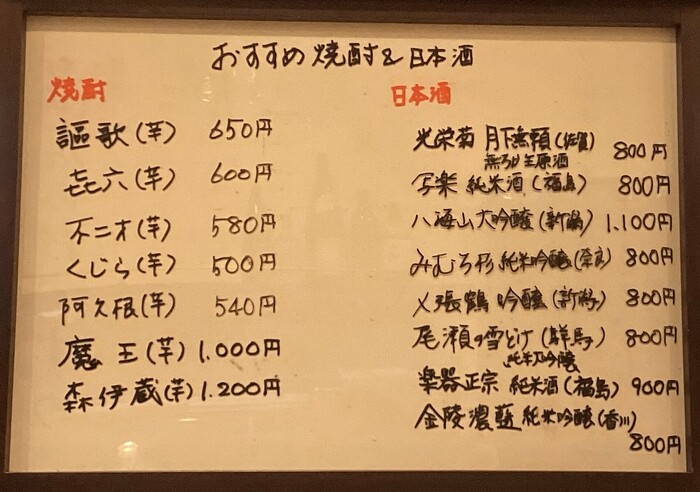 おすすめ焼酎&日本酒
焼酎
謳歌(芋) 650円
㐂六(芋) 600円
不二才(芋) 580円
くじら(芋) 500円
阿久根(芋) 540円
魔王(芋) 1.000円
森伊蔵(芋) 1.200円
日本酒
光栄菊 月下無頼(佐賀) 800円
無ろか生原酒
写楽 純米酒(福島) 800円
八海山大吟醸(新潟) 1.100円
みむろ杉 純米吟醸(奈良) 800円
〆張鶴 吟醸(新潟) 800円
尾瀬の雪どけ(群馬) 800円
純米大吟醸
楽器正宗 純米酒(福島) 900円
金陵濃藍 純米吟醸(香川)
800円